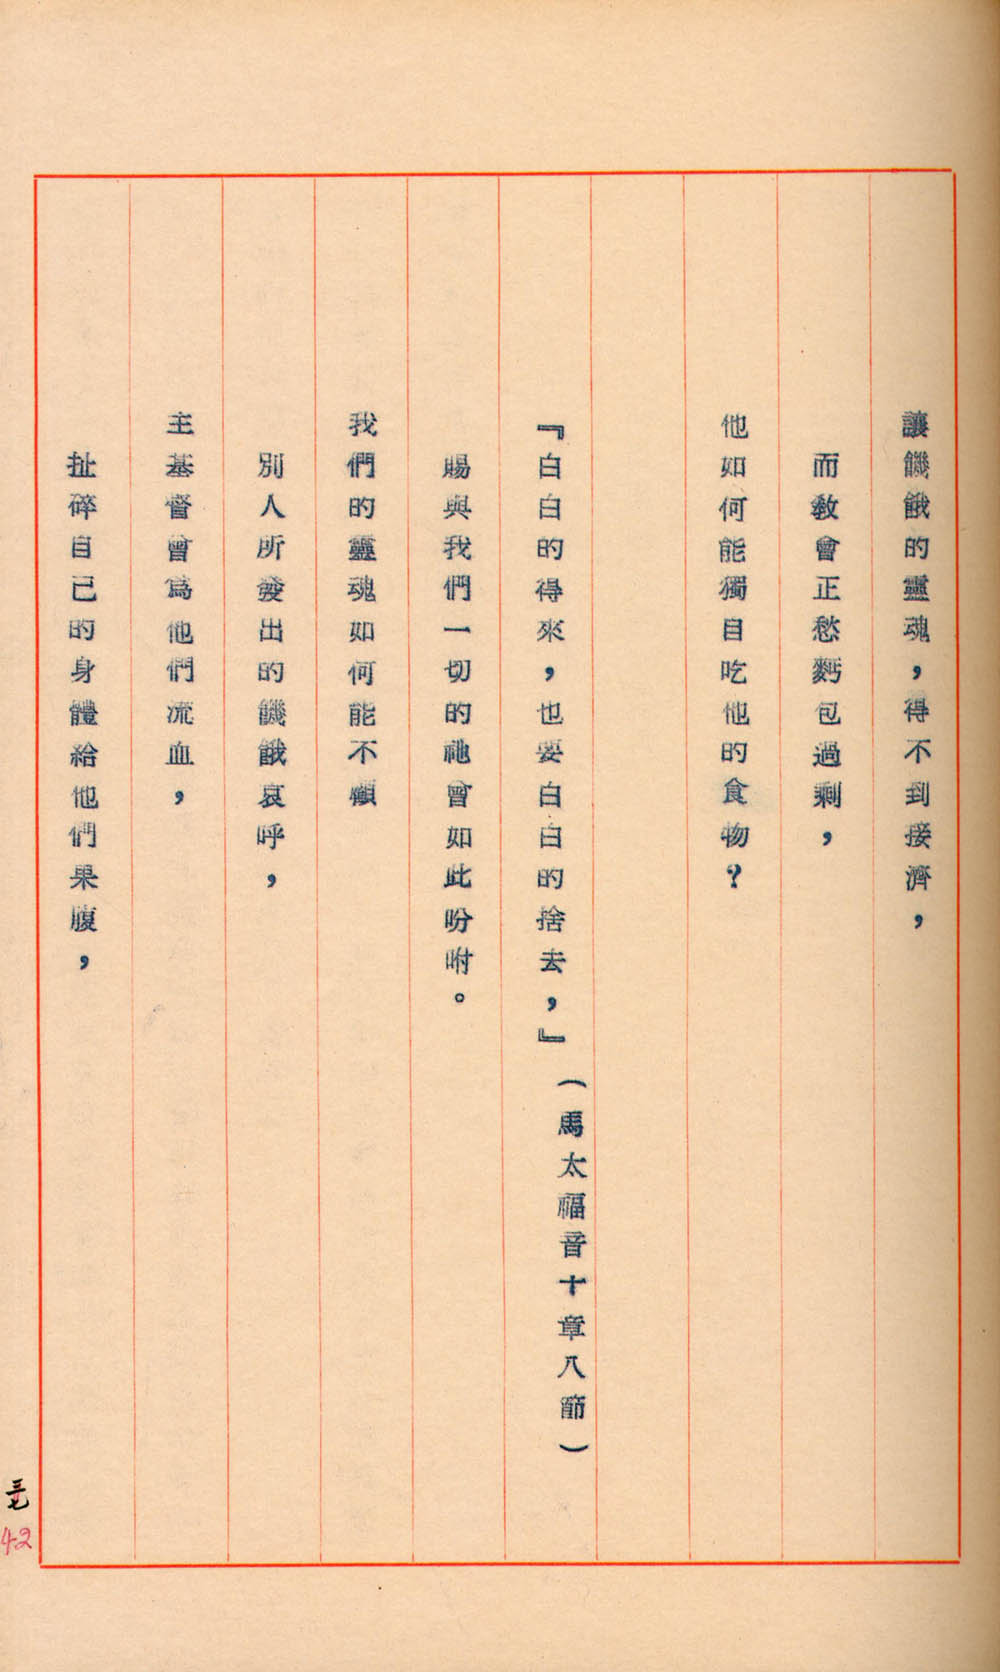 讓饑餓的靈魂，得不到接濟，
而教會正愁麪包過剩，
他如何能獨自吃他的食物？
『白白的得來，也要白白的捨去，』（馬太福音十章八節）
賜與我們一切的祂會如此吩咐。
我們的靈魂如何能不顧
別人所發出的饑餓哀呼，
主基督曾為他們流血，
扯碎自己的身體給他們果腹，
42